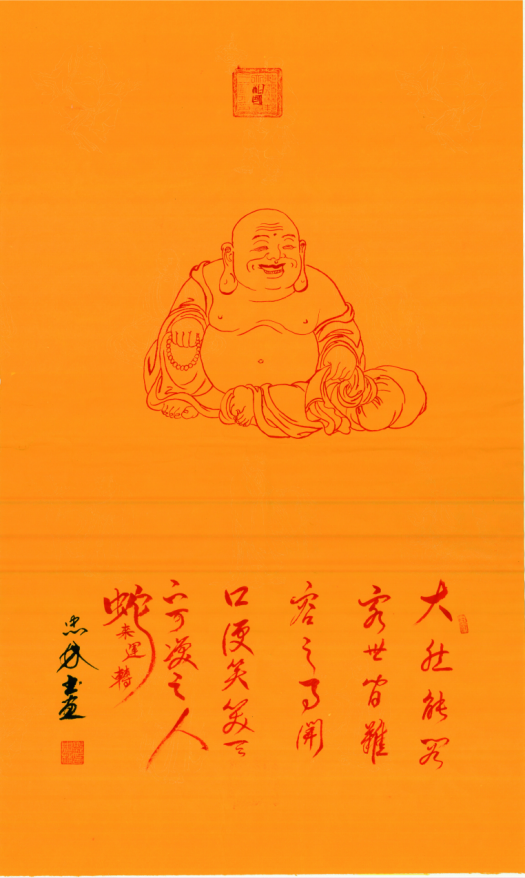 大肚能容
容世间難
容之事開
口便笑笑天
下可笑之人
蛇来運轉
忠林书画